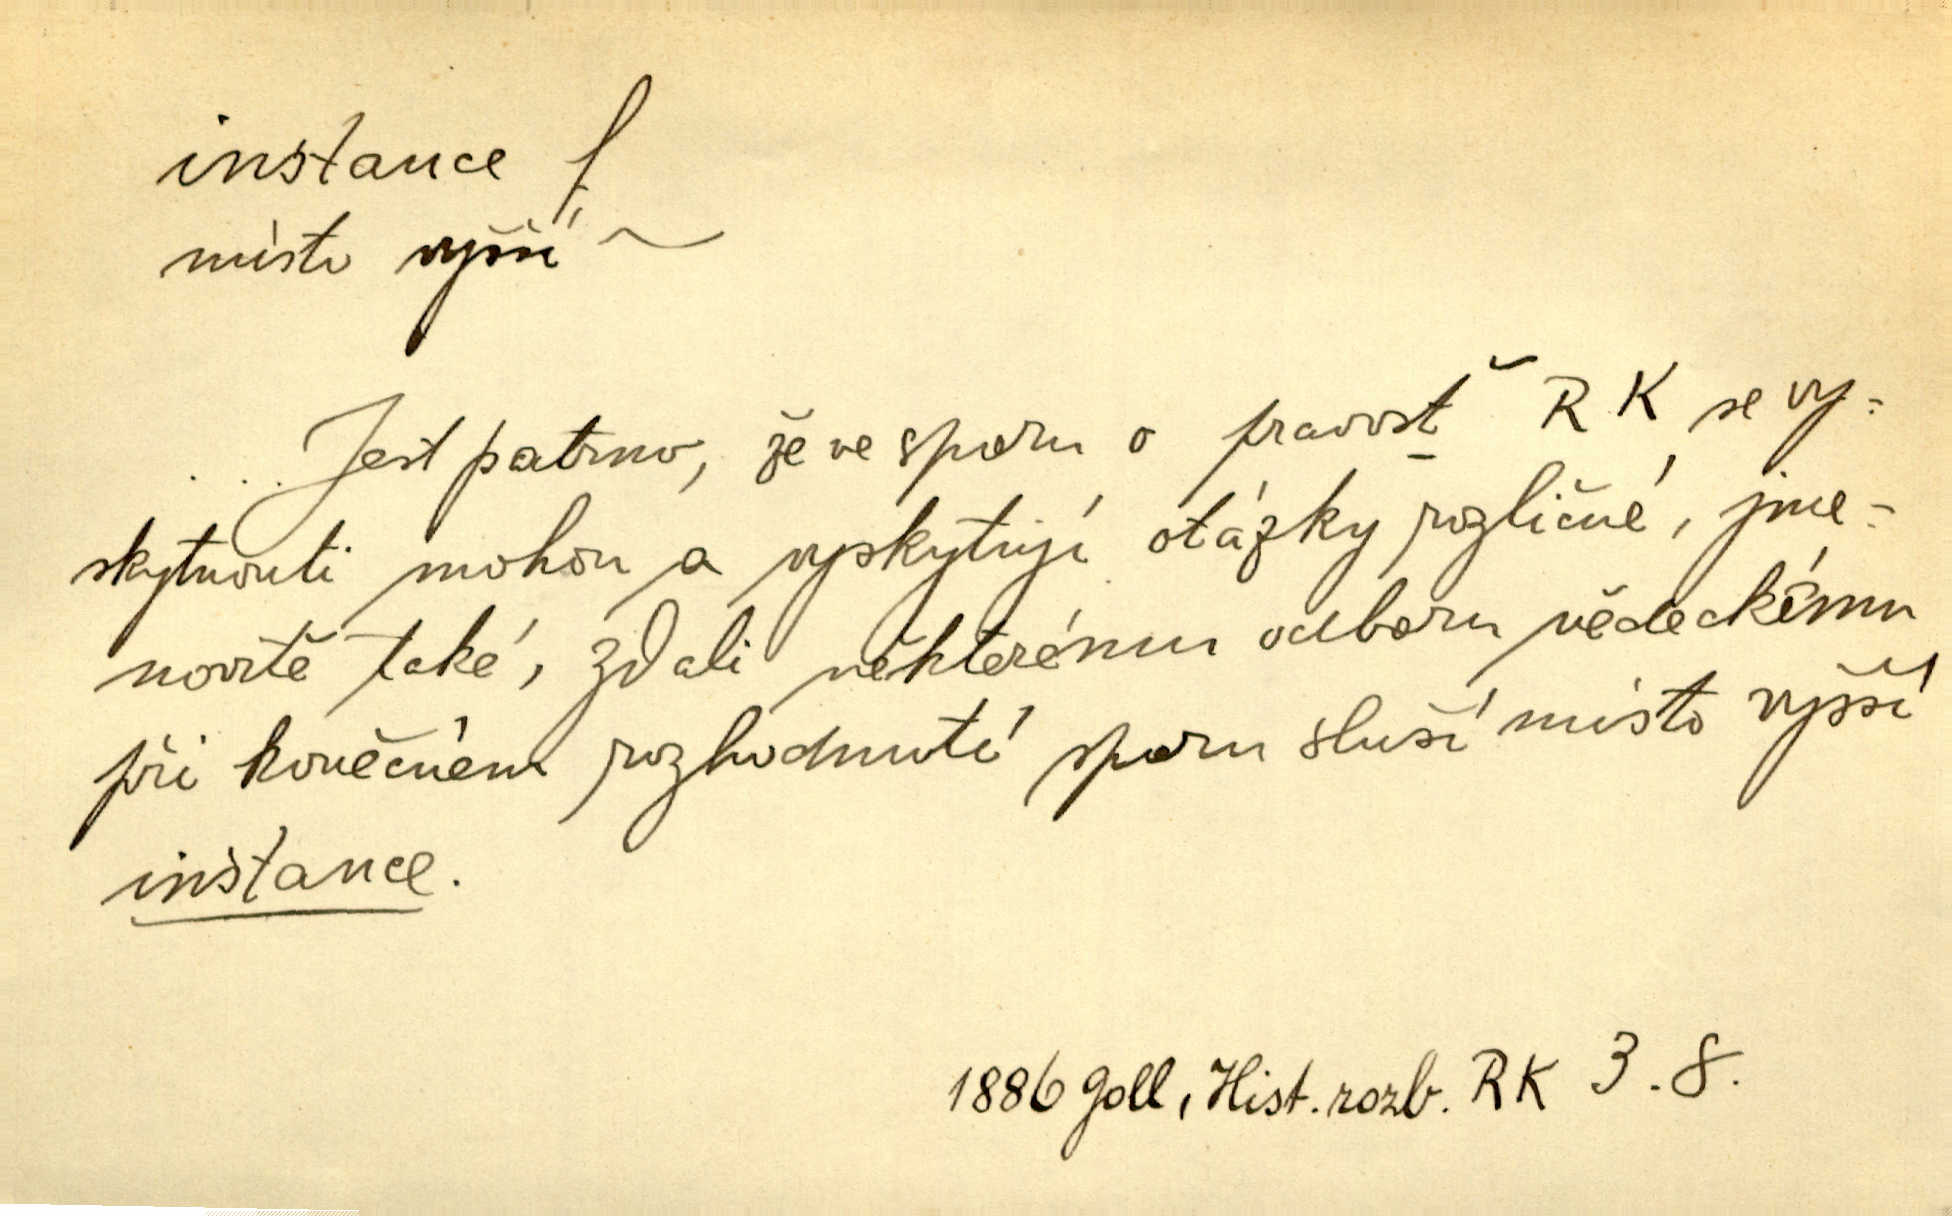 instance f.
místo vyšší ~
... Jest patrno, že ve sporu o pravosť RK se vy-
skytnouti mohou a vyskytují otázky rozličné, jme-
novitě také, zdali některému odboru vědeckému
při konečném rozhodnutí sporu sluší místo vyšší
instance.
1886 Goll, Hist. rozb. RK 3. 8.